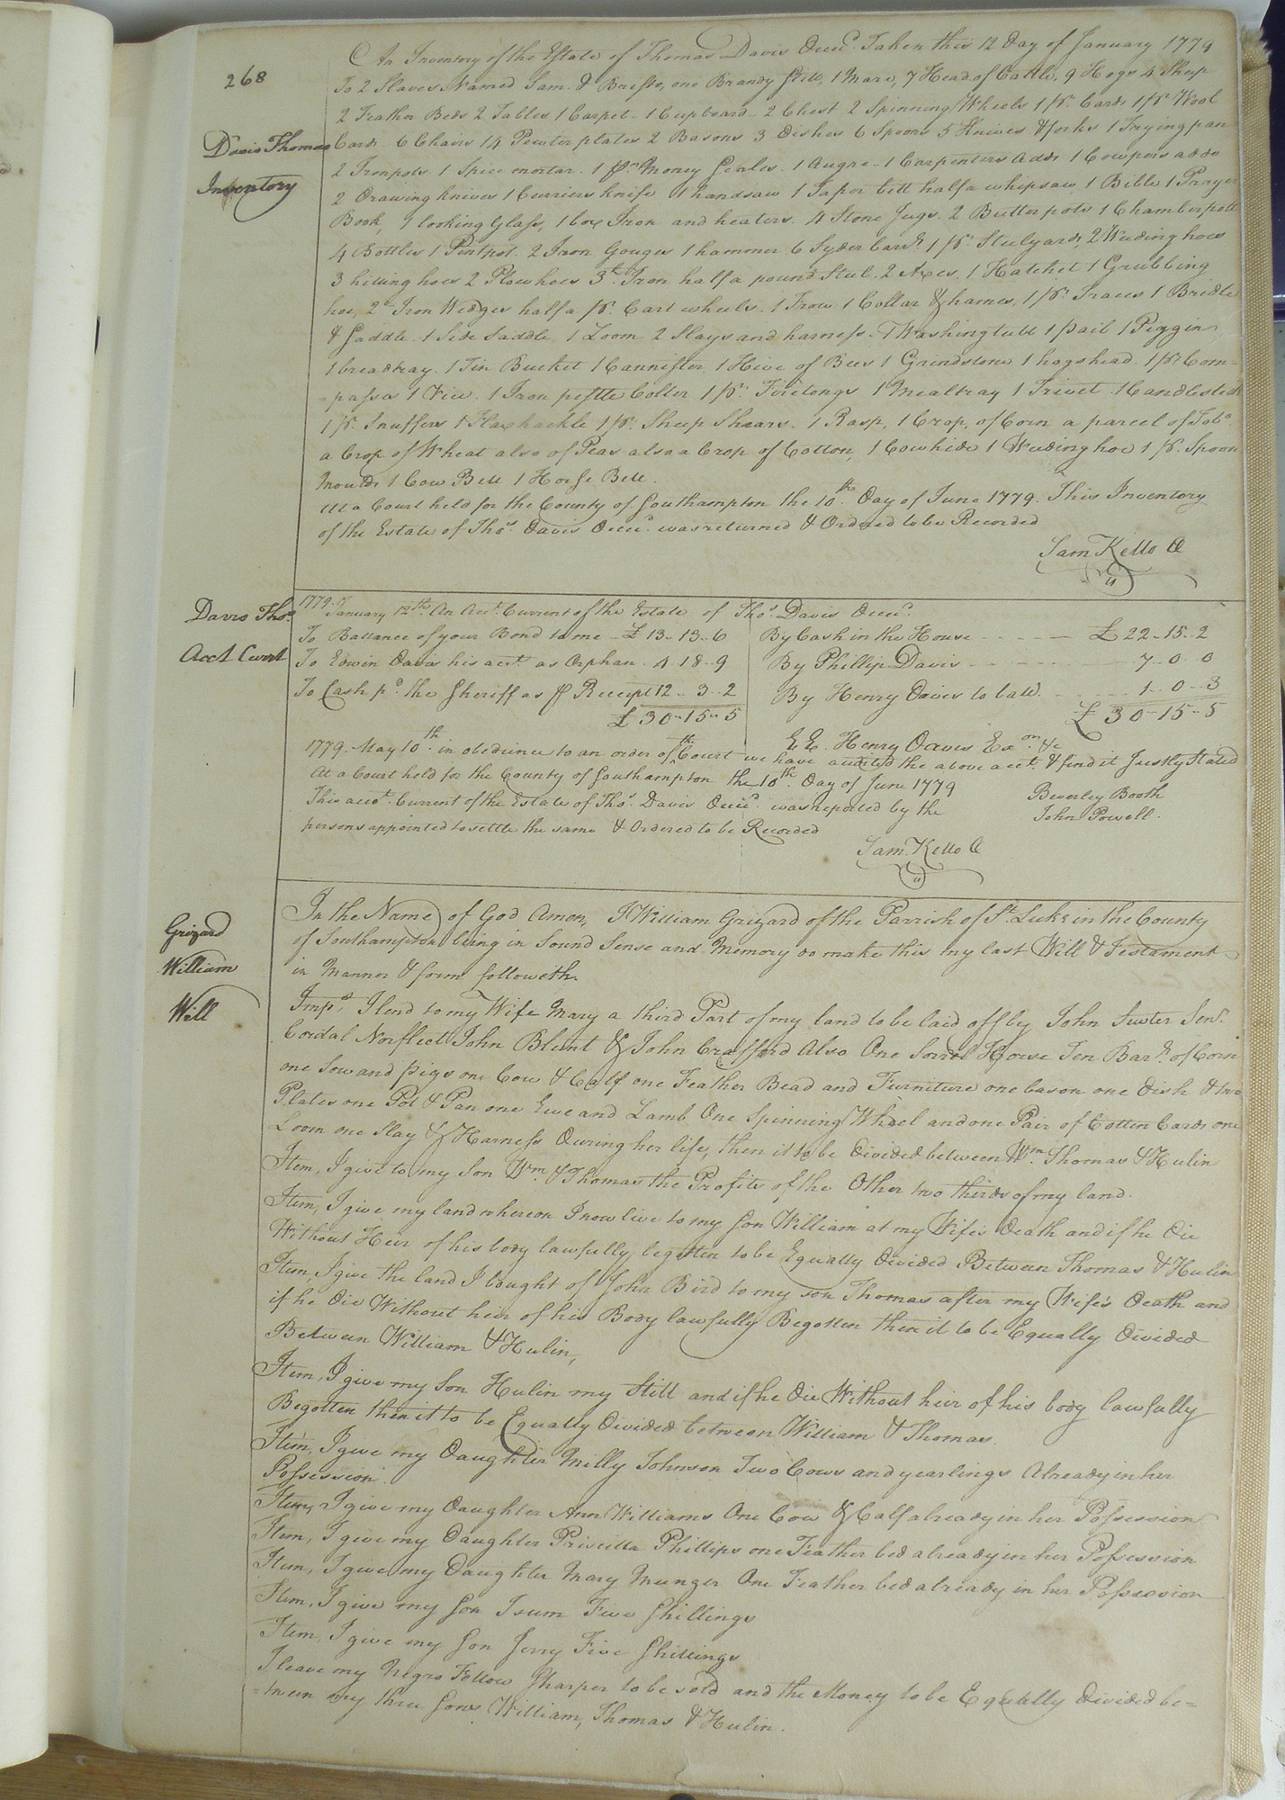 268
An Inventory of the Estate of Thomas Davis Decd. Taken this 12 Day of January 1779
To 2 Slaves Named Sam & Bress, one Brandy Still, 1 Mare, 7 Head of Cattle, 9 Hogs 4 Sheep
2 Feather Beds 2 Tables 1 Carpet 1 Cupboard 2 Chest 2 Spinning Wheels 1 pr. Cards 1 pr. Wool
Davis Thomas
Inventory
Cards 6 Chairs 14 Pewter plates 2 Basons 3 dishes 6 Spoons 5 Knives & forks 1 Frying pan
2 Ironpots 1 Spice mortar. 1 pr. Money Scales. 1 Augre 1 Carpenters Adds 1 Cowpers adds
2 Drawing knives 1 Curriers knife 1 handsaw 1 Taper bitt half a whipsaw 1 Bible 1 Prayer
Book, 1 looking Glass, 1 box Iron and heaters. 4 Stone Jugs. 2 Butter pots 1 Chamberpott
4 Bottles 1 Pintpot. 2 Iron Gouges 1 hammer 6 Syder Cards 1 pr. Stulyards 2 Weeding hoes
3 hilling hoes 2 Plow hoes 3 lb. Iron half a pound Stul. 2 Axes. 1 Hatchet 1 Grubbing
hoe, 2 Iron Wedges half a pr. Cart wheels. 1 Frow 1 Collar & hames, 1 pr. Traces 1 Bridle
& Saddle 1 Side Saddle, 1 Loom 2 Slays and harness. 1 Washing tubb 1 pail 1 Piggin
1 breadtray. 1 Tin Bucket 1 Cannister, 1 Hive of Bees 1 Grindstone 1 hogshead. 1 pr. Com=
=passes 1 Vice. 1 Iron pestle Colter 1 pr. Firetongs 1 Mealtray 1 Trivet 1 Candlestick
1 pr. Snuffers 1 Flaxhackle 1 pr. Sheep Shears. 1 Rasp, 1 Crop of Corn a parcel of Tobo
a Crop of Wheat also of Peas also a Crop of Cotton, 1 Cowhide 1 Weeding hoe 1 pr. Spoon
Moulds 1 Cow Bell 1 Horse Bell.
At a Court held for the County of Southampton the 10th. Day of June 1779. This Inventory
of the Estate of Thos. Davis Decd. was returned & Ordered to be Recorded
Sam Kello Cl
Davis Thos.
Acct Currt
1779 January 12th. An Acct. Current of the Estate of Thos. Davis Decd.
To Ballance of your Bond to me £ 13-13-6 By Cash in the House £ 22-15-2
To Edwin Davis his acct as Orphan 4-18-9 By Phillip Davis 7-0-0
To Cash pd. the Sheriff as pr Receipt 12-3-2 By Henry Davis to ball. 1-0-3
£ 30-15-5 £ 30-15-5
E. E. Henry Davis Exor. &c
1779. May 10th. in obedience to an order of the Court we have audited the above acct. & find it Justly Stated
At a Court held for the County of Southampton the 10th. Day of June 1779 Beverley Booth
This acct. Current of the Estate of Thos. Davis Decd. was reported by the John Powell.
persons appointed to settle the same & Ordered to be Recorded
Sam Kello Cl
Grizard
William
Will
In the Name of God Amen, I William Grizard of the Parrish of St. Luke in the County
of Southampton being in Sound Sense and Memory do make this my last Will & Testament
in Manner & form followeth
Imps. I lend to my Wife Mary a third Part of my land to be laid off by John Suter Senr.
Cordal Norfleet John Blunt & John Crafford Also One Sorrel Horse Ten Barls. of Corn
one Sow and pigs one Cow & Calf one Feather Bead and Furniture one bason one dish & two
Plates one Pot & Pan one Ewe and Lamb One Spinning Wheel and one Pair of Cotten Cards one
Loom one Slay & Harness During her life, then it to be divided between Wm. Thomas & Hulin
Item, I give to my Son Wm. & Thomas the Profits of the Other two thirds of my land.
Item, I give my land whereon I now live to my Son William at my Wife's Death and if he die
Without Heir of his body lawfully begotten to be Equally divided Between Thomas & Hulin
Item, I give the land I bought of John Bird to my son Thomas after my Wife's Death and
if he Die Without heir of his Body lawfully Begotten then it to be Equally divided
Between William & Hulin,
Item, I give my Son Hulin my Still and if he Die Without heir of his body lawfully
Begotten then it to be Equally Divided between William & Thomas
Item, I give my Daughter Milly Johnson Two Cows and yearlings Already in her
Possession.
Item, I give my Daughter Ann Williams One Cow & Calf already in her Possession
Item, I give my Daughter Priscilla Phillips one Feather bed already in her Possession
Item, I give my Daughter Mary Munger One Feather bed already in her Possession
Item, I give my Son Isum Five Shillings
Item, I give my Son Jerry Five Shillings
I leave my Negro Fellow Sharper to be sold and the Money to be Equally divided be=
=tween my three Sons William, Thomas & Hulin.